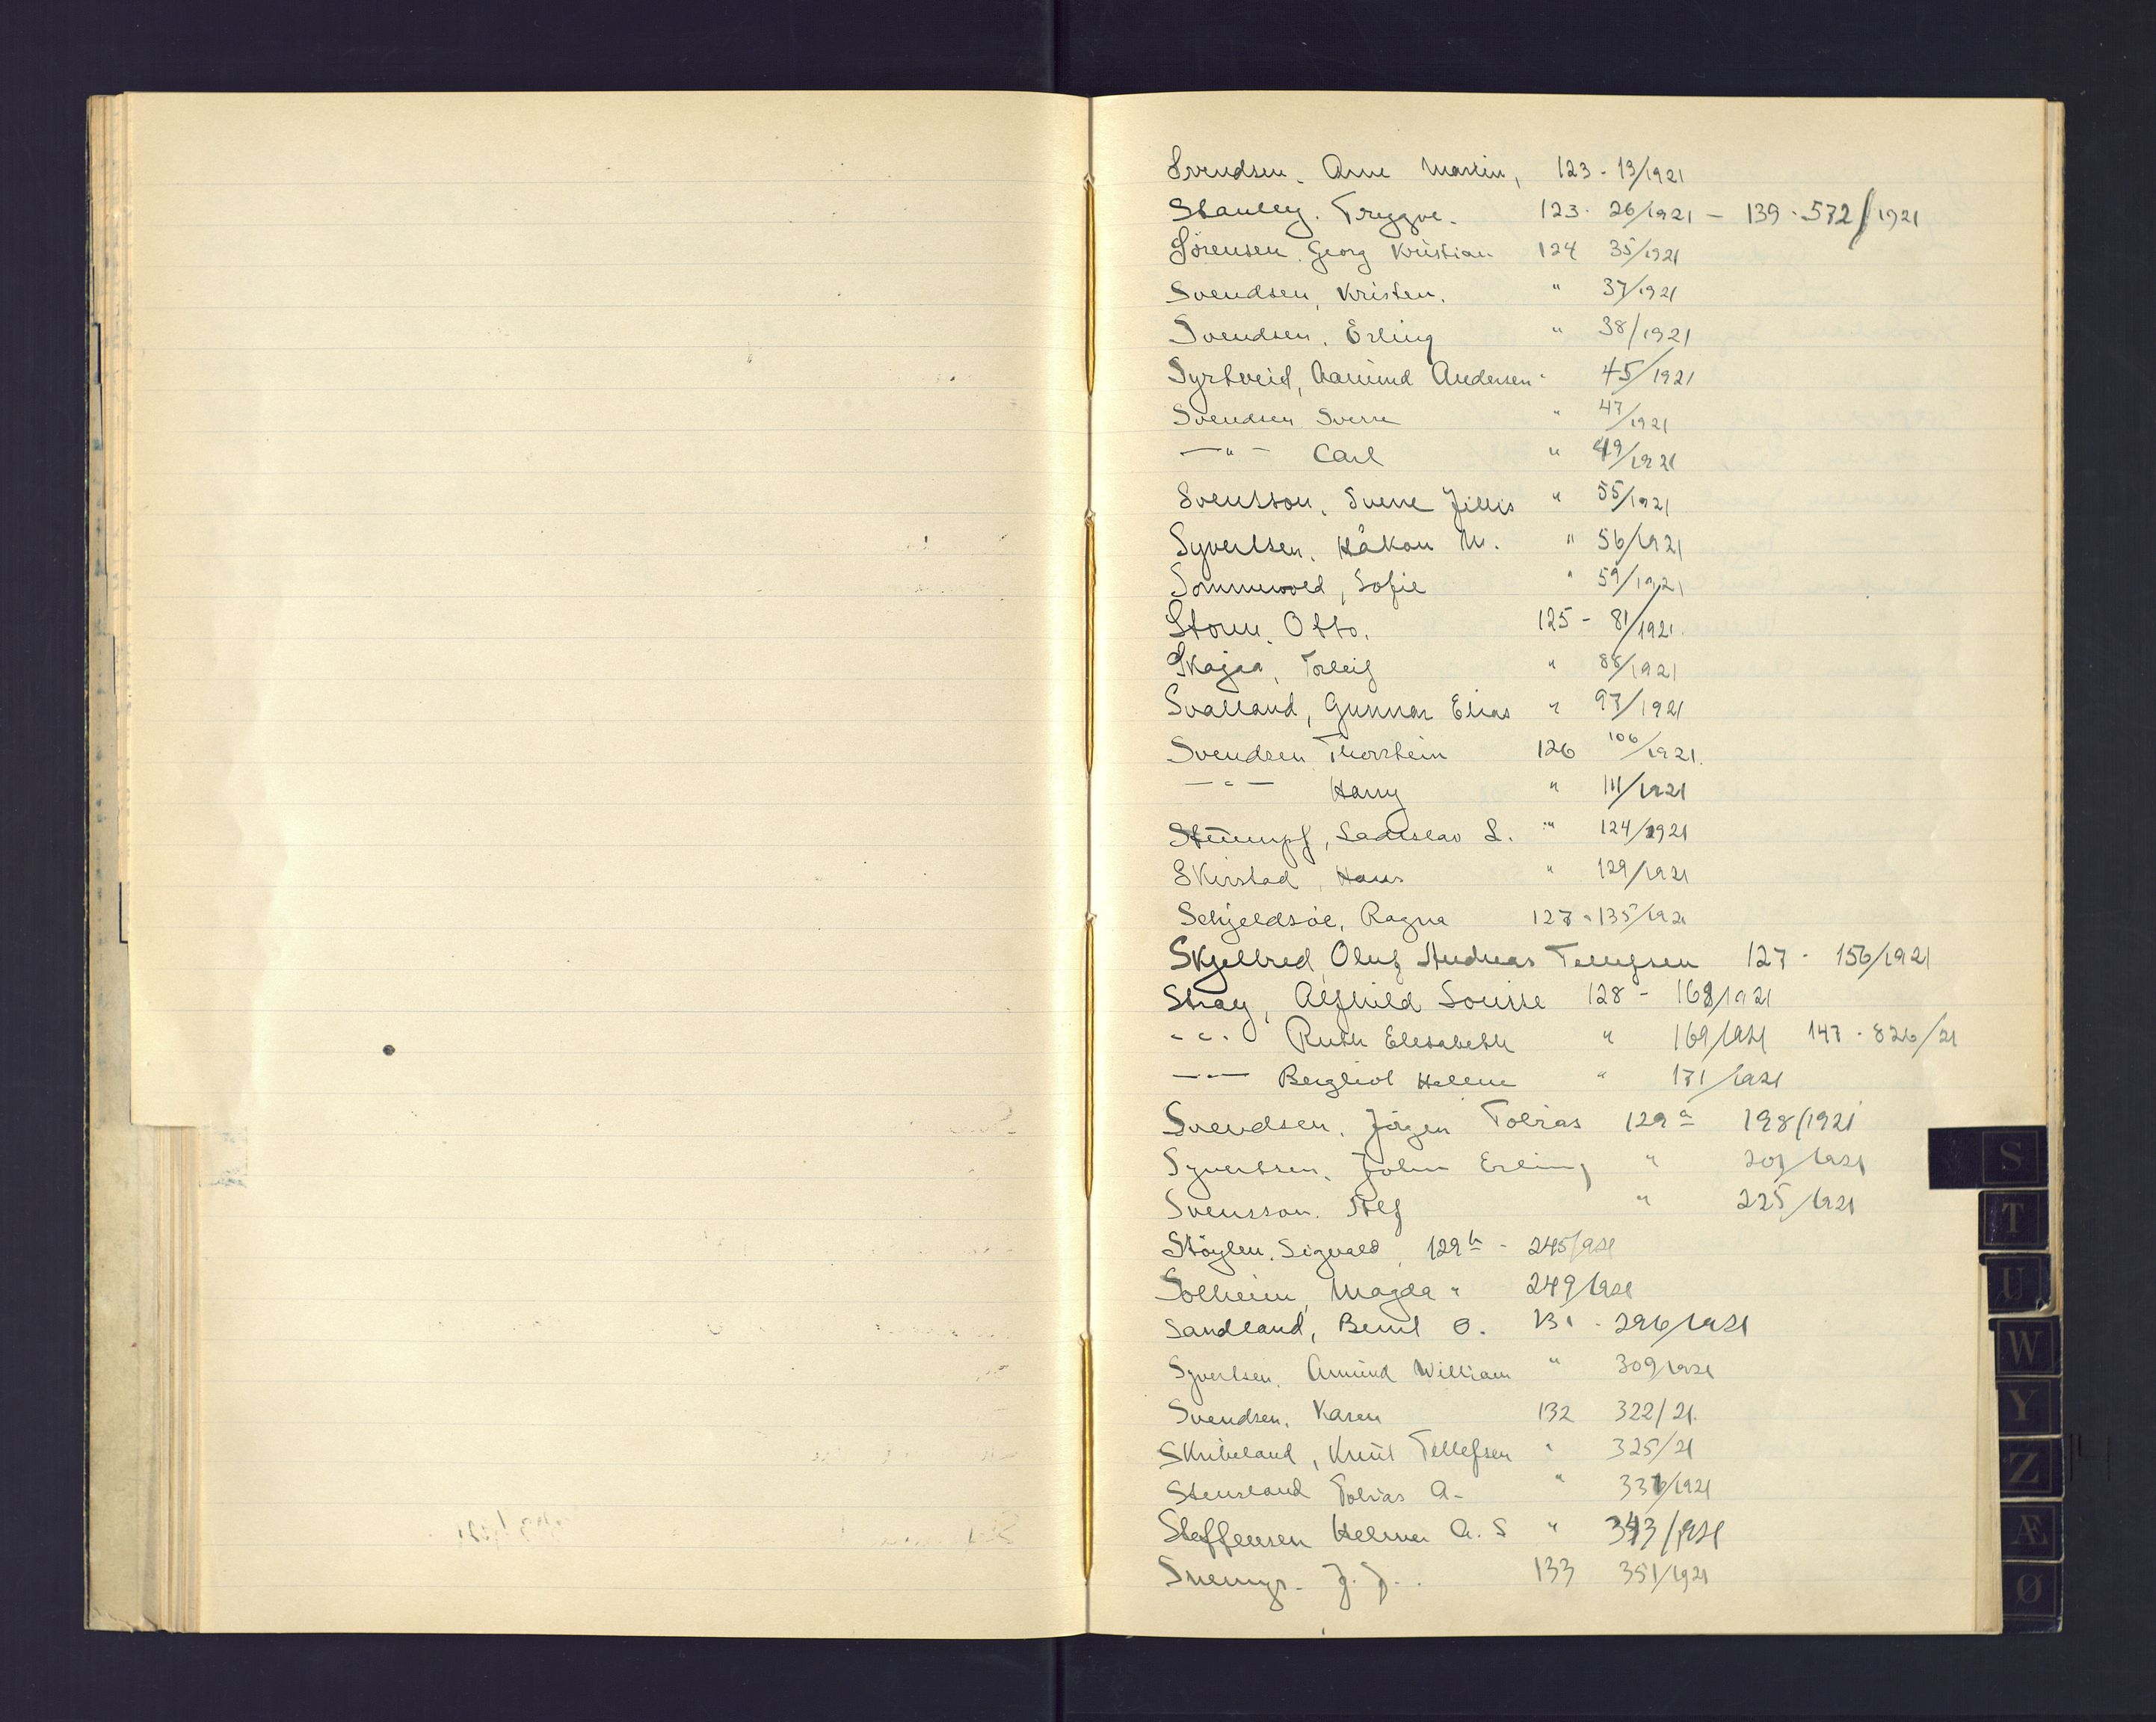 Svendsen. Arne Martin, 123 - 13/1921
Stanley. Trygve. 123 - 26/1921 - 139 - 572/1921
Sörensen. Georg Kristian 124 35/1921
Svendsen, Kristen. " 37/1921
Svendsen, Erling " 38/1921
Syrtveid, Aamund Andersen " 45/1921
Svendsen Sverre " 47/1921
—"— Carl " 49/1921
Svensson, Svene Jillis " 55/1921
Syvertsen. Håkon M. " 56/1921
Sommervold, Sofie " 59/1921
Storm. Otto. 125 - 81/1921.
Skajaa, Torleif " 88/1921
Svaland, Gunnar Elias " 97/1921
Svendsen Thorstein 126 106/1921.
—"— Harry " 111/1921
Stumpf, Ladislav L. " 124/1921
Skirstad, Hans " 129/1921
Schjeldsöe, Ragna 127 - 135/1921
Skjelbred, Oluf Andreas Tellefsen 127 - 156/1921
Stray, Alfhild Louise 128 - 168/1921
-"- Ruth Elisabeth " 169/1921 147 - 826/21
—"— Bergliot Helene " 171/1921
Svendsen. Jörgen Tobias 129 a 198/1921
Syvertsen. John Erling " 207/1921
Svensson. Alf " 225/1921
Stöylen. Sigvald, 129 b - 245/1921
Solheim, Magda " 249/1921
Sandland, Bernt O. 131 - 296/1921
Syvertsen. Amund William " 309/1921
Svendsen. Karen 132 322/21.
Skribeland, Knut Tellefsen " 325/21
Stensland Tobias A. " 336/1921
Steffensen Helmer A. S " 343/1921
Snemyr. J. J. 133 351/1921
S
T
U
W
Y
Z
Æ
Ø